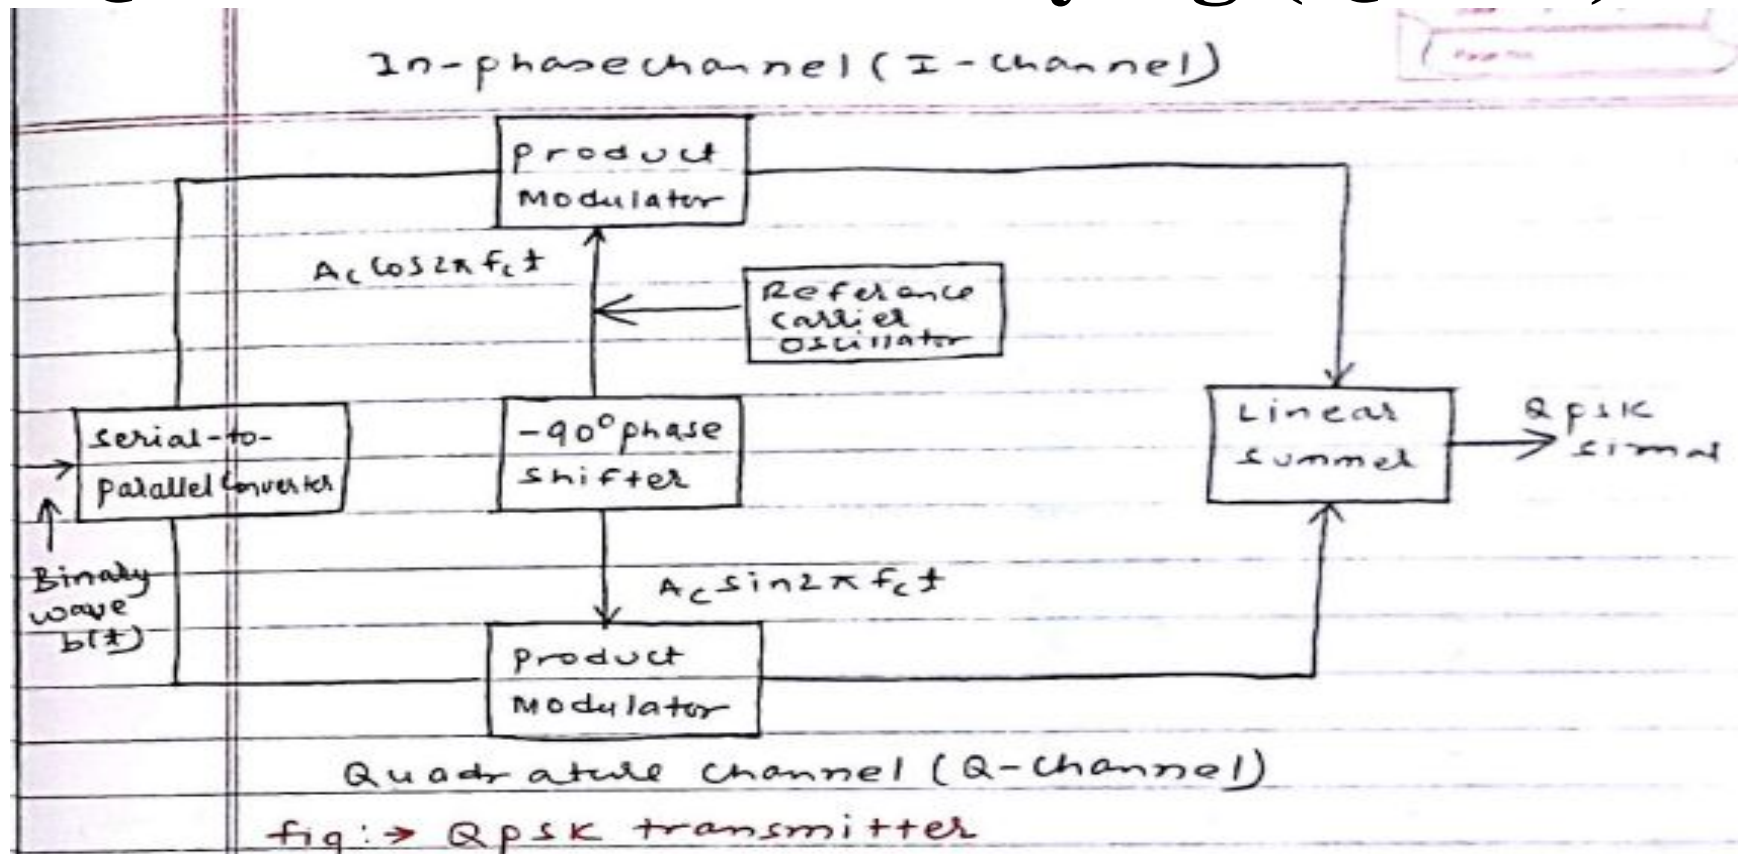 In-phase channel (I-channel)
Product
Modulator
Ac cos2π fc t
Referance
carrier
oscillator
Serial-to-
Parallel Converter
-90° phase
shifter
Linear
summer
Qpsk
Binary
wave
b(t)
Ac sin2π fc t
Product
Modulator
Quadrature channel (Q-channel)
fig:→ Qpsk transmitter